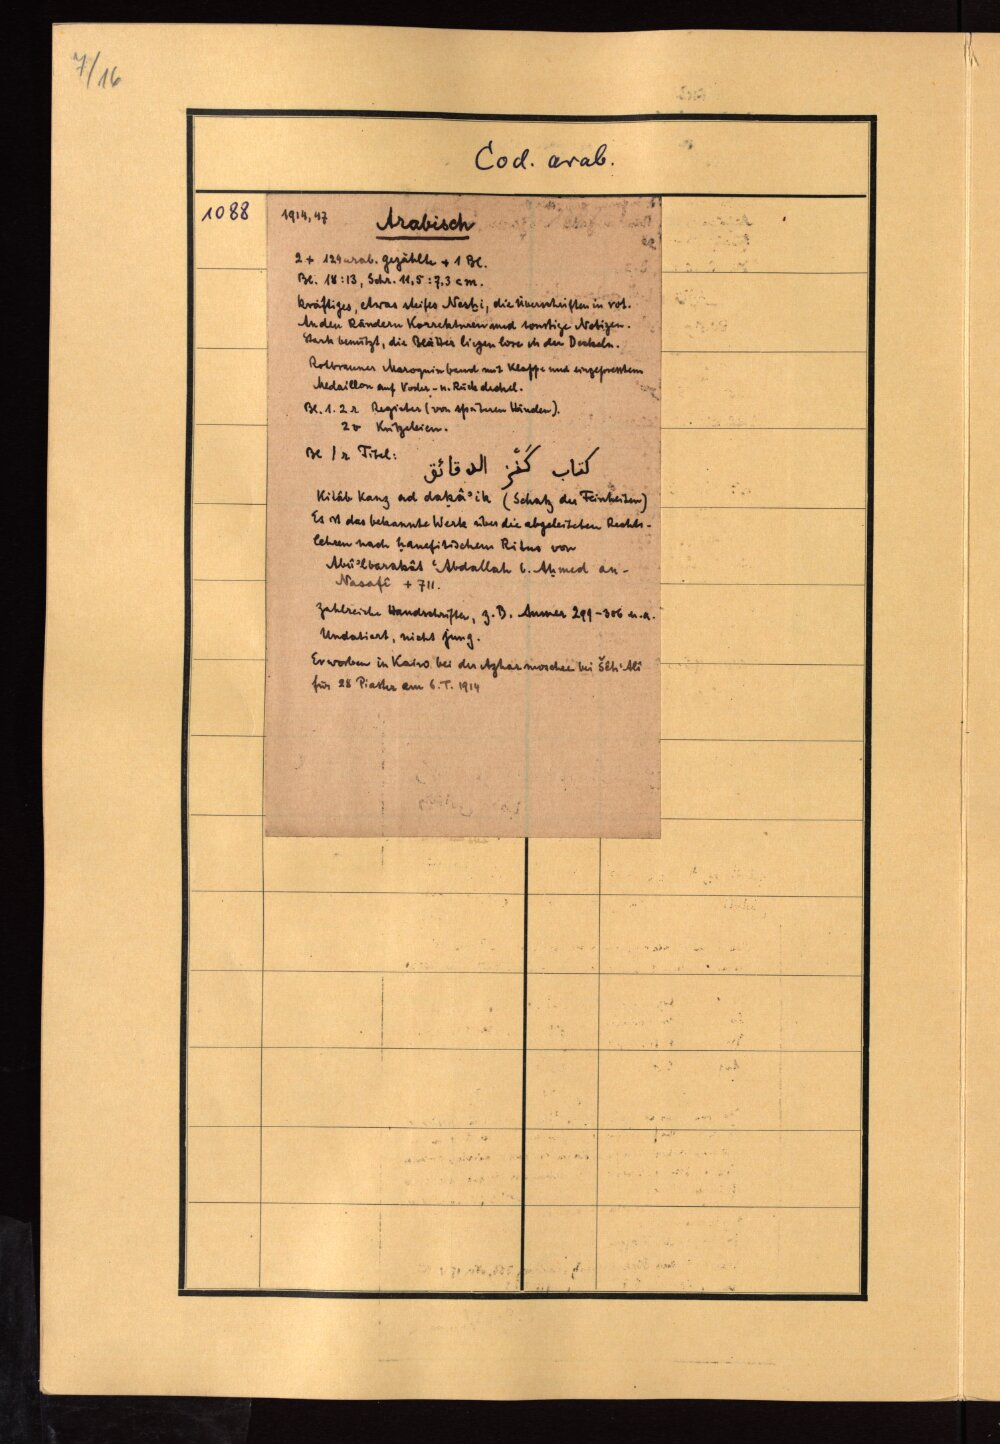 7/16
Cod. arab.
1088
1914, 47
Arabisch
2 + 129 arab. gezählte + 1 Bl.
Bl. 18:13, Schr. 11,5:7,3 cm.
Kräftiges, etwas steifes Nesḫi, die Überschriften in rot.
An den Rändern Korrekturen und sonstige Notizen.
Stark benützt, die Blätter liegen lose in den Deckeln.
Rotbrauner Maroquinband mit Klappe und eingepresstem
Medaillon auf Vorder- u. Rückdeckel.
Bl. 1. 2 r Register (von späteren Händen).
2 v Kritzeleien.
Bl 1 r Titel:
كتاب كَنْز الدقائق
Kitâb Kanz ad daḳâʾiḳ (Schatz der Feinheiten)
Es ist das bekannte Werk über die abgeleiteten Rechts-
lehren nach ḥanefitischem Ritus von
Abûʾlbarakât ʿAbdallah b. Aḥmed an-
Nasafî + 711.
Zahlreiche Handschriften, z. B. Aumer 299-306 u. a.
Undatiert, nicht jung.
Erworben in Kairo bei der Azharmoschee bei Šêḫ ʿAlî
für 28 Piaster am 6. I. 1914